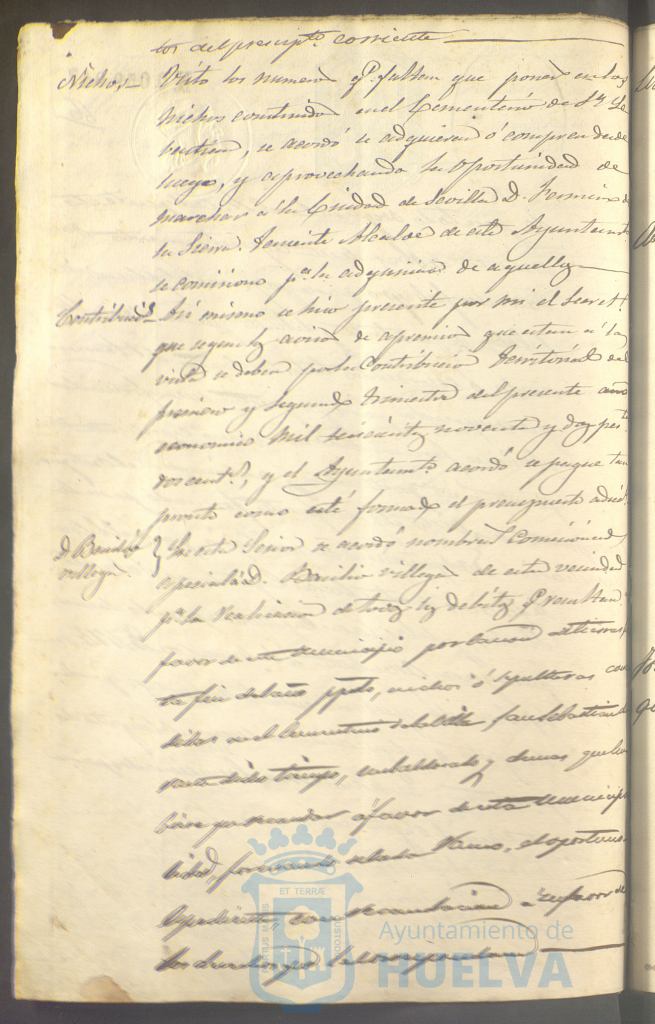 tos del presup.to corriente
Nichos Visto los numeros q.e faltan que poner en los
nichos construidos en el Cementerio de S.n Se
bastian, se acordó se adquieran ó compren desde
luego, y aprovechando la oportunidad de
marchar á la Ciudad de Sevilla D. Fermin de
la Sierra Teniente Alcalde de este Ayuntam.to
se comisiona p.a la adquisicion de aquellos
Contribucion Asi mismo se hizo presente por mi el Secret.o
que segun los avisos de apremio que estan á la
vista se deben por la Contribucion Territorial del
primero y segundo trimestre del presente año
economico mil seiscientas noventa y dos pes.tas
dos cent.s, y el Ayuntam.to acordó se pague tan
pronto como esté formado el presupuesto adici
D. Basilio Villegas } Por este Señor se acordó nombrar Comisionado
especial á D. Basilio Villegas de esta vecindad
p.a la realizacion de todos los debitos q.e resultan
favor de este Municipio por
ta fin del año ppdo, nichos ó sepulturas con
didas en el Cementerio de la Villa San Sebastian du
rante dicho tiempo, y demas que hu
biere que recaudar á favor de este Municipi
formando de cada ramo, el oportuno
Espediente con á su favor de
los derechos que le correspondan
ET TERRÆ
CUSTODIA
PORTUS MARIS
Ayuntamiento de
HUELVA